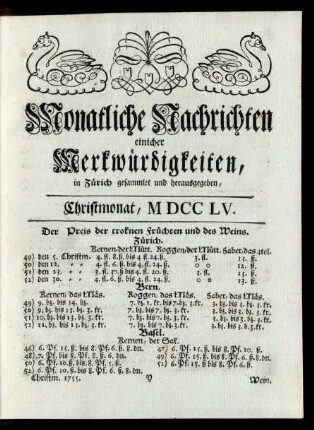 Monatliche Nachrichten
einicher
Merkwürdigkeiten,
in Zürich gesammlet und herausgegeben,
Christmonat, MDCCLV.
Der Preis der troknen Früchten und des Weins.
Zürich.
Kernen der Mütt. Roggen der Mütt. Haber, das
49) den 5. Christm. 4. fl. 8. ß. bis 4. fl. 24. ß. 3. fl. 13. ß.
50) den 12. 4. fl. 6. ß. bis 4. fl. 24. ß. 0 0 12. ß.
51) den 23. 3. fl. bis 4. fl. 3. fl. 13. ß.
52) den 30. 4. fl. 6. ß. bis 4. fl. 24. ß. 0 0 13. ß.
Bern.
Kernen, das Mäs. Roggen, das Mäs. Haber, das Mäs.
49) 9. bz. bis 14. bz. 7. bz. 1. kr. bis 7. bz. 3. kr. 3. bz. bis 3. bz. 3. kr.
50) 9. bz. bis 3. kr. 7. bz. bis 7. bz. 2. kr. 3. bz. bis 3. bz. 3. kr.
51) 10. bz. bis 13. bz. 2. kr. 7. bz. bis 7. bz. 3. kr. 3. bz. bis 3. bz. 3. kr.
52) 11. bz. bis 13. bz. 3. kr. 7. bz. bis 7. bz. 2. kr. 3. bz. bis 3. bz. 3. kr.
Basel.
Kernen, der Sak.
46) 6. Pf. 15. ß. bis 8. Pf. 6. ß. 8. dn. 47) 6. Pf. 15. ß. bis 8. Pf. 10. ß.
48) 7. Pf. bis 8. Pf. 6. ß. 8. dn. 49) 6. Pf. 15. ß. bis 8. Pf. 6. ß.
50) 6. Pf. bis 8. Pf. 10. ß. 51) 6. Pf. 15. ß. bis 8. Pf. 10. ß.
52) 6. Pf. 10. ß. bis 8. Pf. 6. ß. 8. dn.
Christm. 1755. Y Wein,